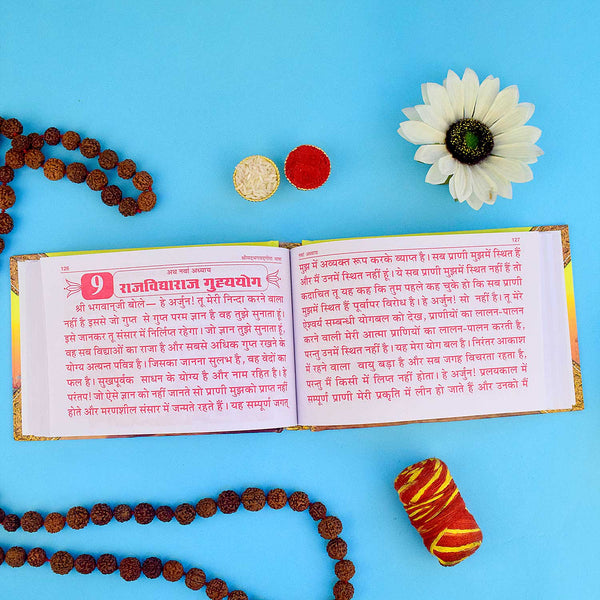 126
अथ नवां अध्याय
श्रीमद्भगवद्गीता भाषा
9 राजविद्याराज गुह्ययोग
श्री भगवानूजी बोले— हे अर्जुन! तू मेरी निन्दा करने वाला
नहीं है इससे जो गुप्त से गुप्त परम ज्ञान है वह तुझे सुनाता हूं,
इसे जानकर तू संसार में निर्लिप्त रहेगा। जो ज्ञान तुझे सुनाता हूं,
वह सब विद्याओं का राजा है और सबसे अधिक गुप्त रखने के
योग्य अत्यन्त पवित्र है। जिसका जानना सुलभ है, वह वेदों का
फल है। सुखपूर्वक साधन के योग्य है और नाम रहित है। हे
परंतप! जो ऐसे ज्ञान को नहीं जानते सो प्राणी मुझको प्राप्त नहीं
होते और मरणशील संसार में जन्मते रहते हैं। यह सम्पूर्ण जगत्
नवां अध्याय
127
मुझ में अव्यक्त रूप करके व्याप्त है। सब प्राणी मुझमें स्थित हैं
और मैं उनमें स्थित नहीं हूं। ये सब प्राणी मुझमें स्थित नहीं हैं तो
कदाचित तू यह कह कि तुम पहले कह चुके हो कि सब प्राणी
मुझमें स्थित हैं पूर्वापर विरोध है। हे अर्जुन! सो नहीं है। तू मेरे
ऐश्वर्य सम्बन्धी योगबल को देख, प्राणीयों का लालन-पालन
करने वाली मेरी आत्मा प्राणियों का लालन-पालन करती है,
परन्तु उनमें स्थित नहीं है। यह मेरा योग बल है। निरंतर आकाश
में रहने वाला वायु बड़ा है और सब जगह विचरता रहता है,
परन्तु मैं किसी में लिप्त नहीं होता। हे अर्जुन! प्रलयकाल में
सम्पूर्ण प्राणी मेरी प्रकृति में लीन हो जाते हैं और उनको मैं